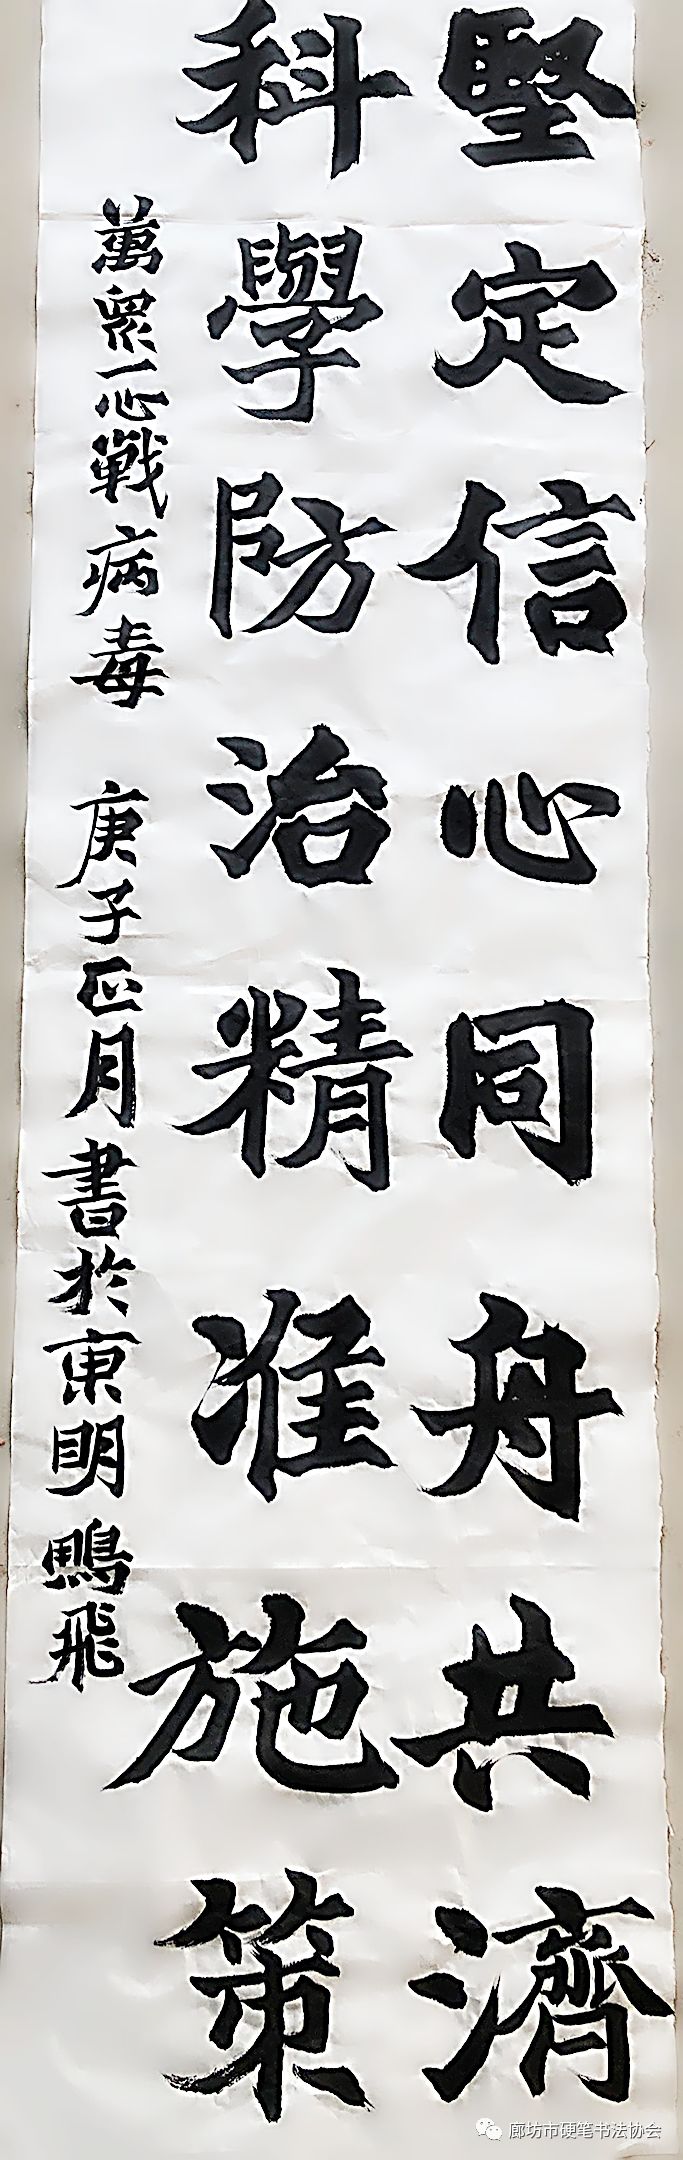 堅定信心同舟共濟
科學防治精准施策
萬衆一心戰病毒 庚子正月書於東明鵬飛
廊坊市硬笔书法协会